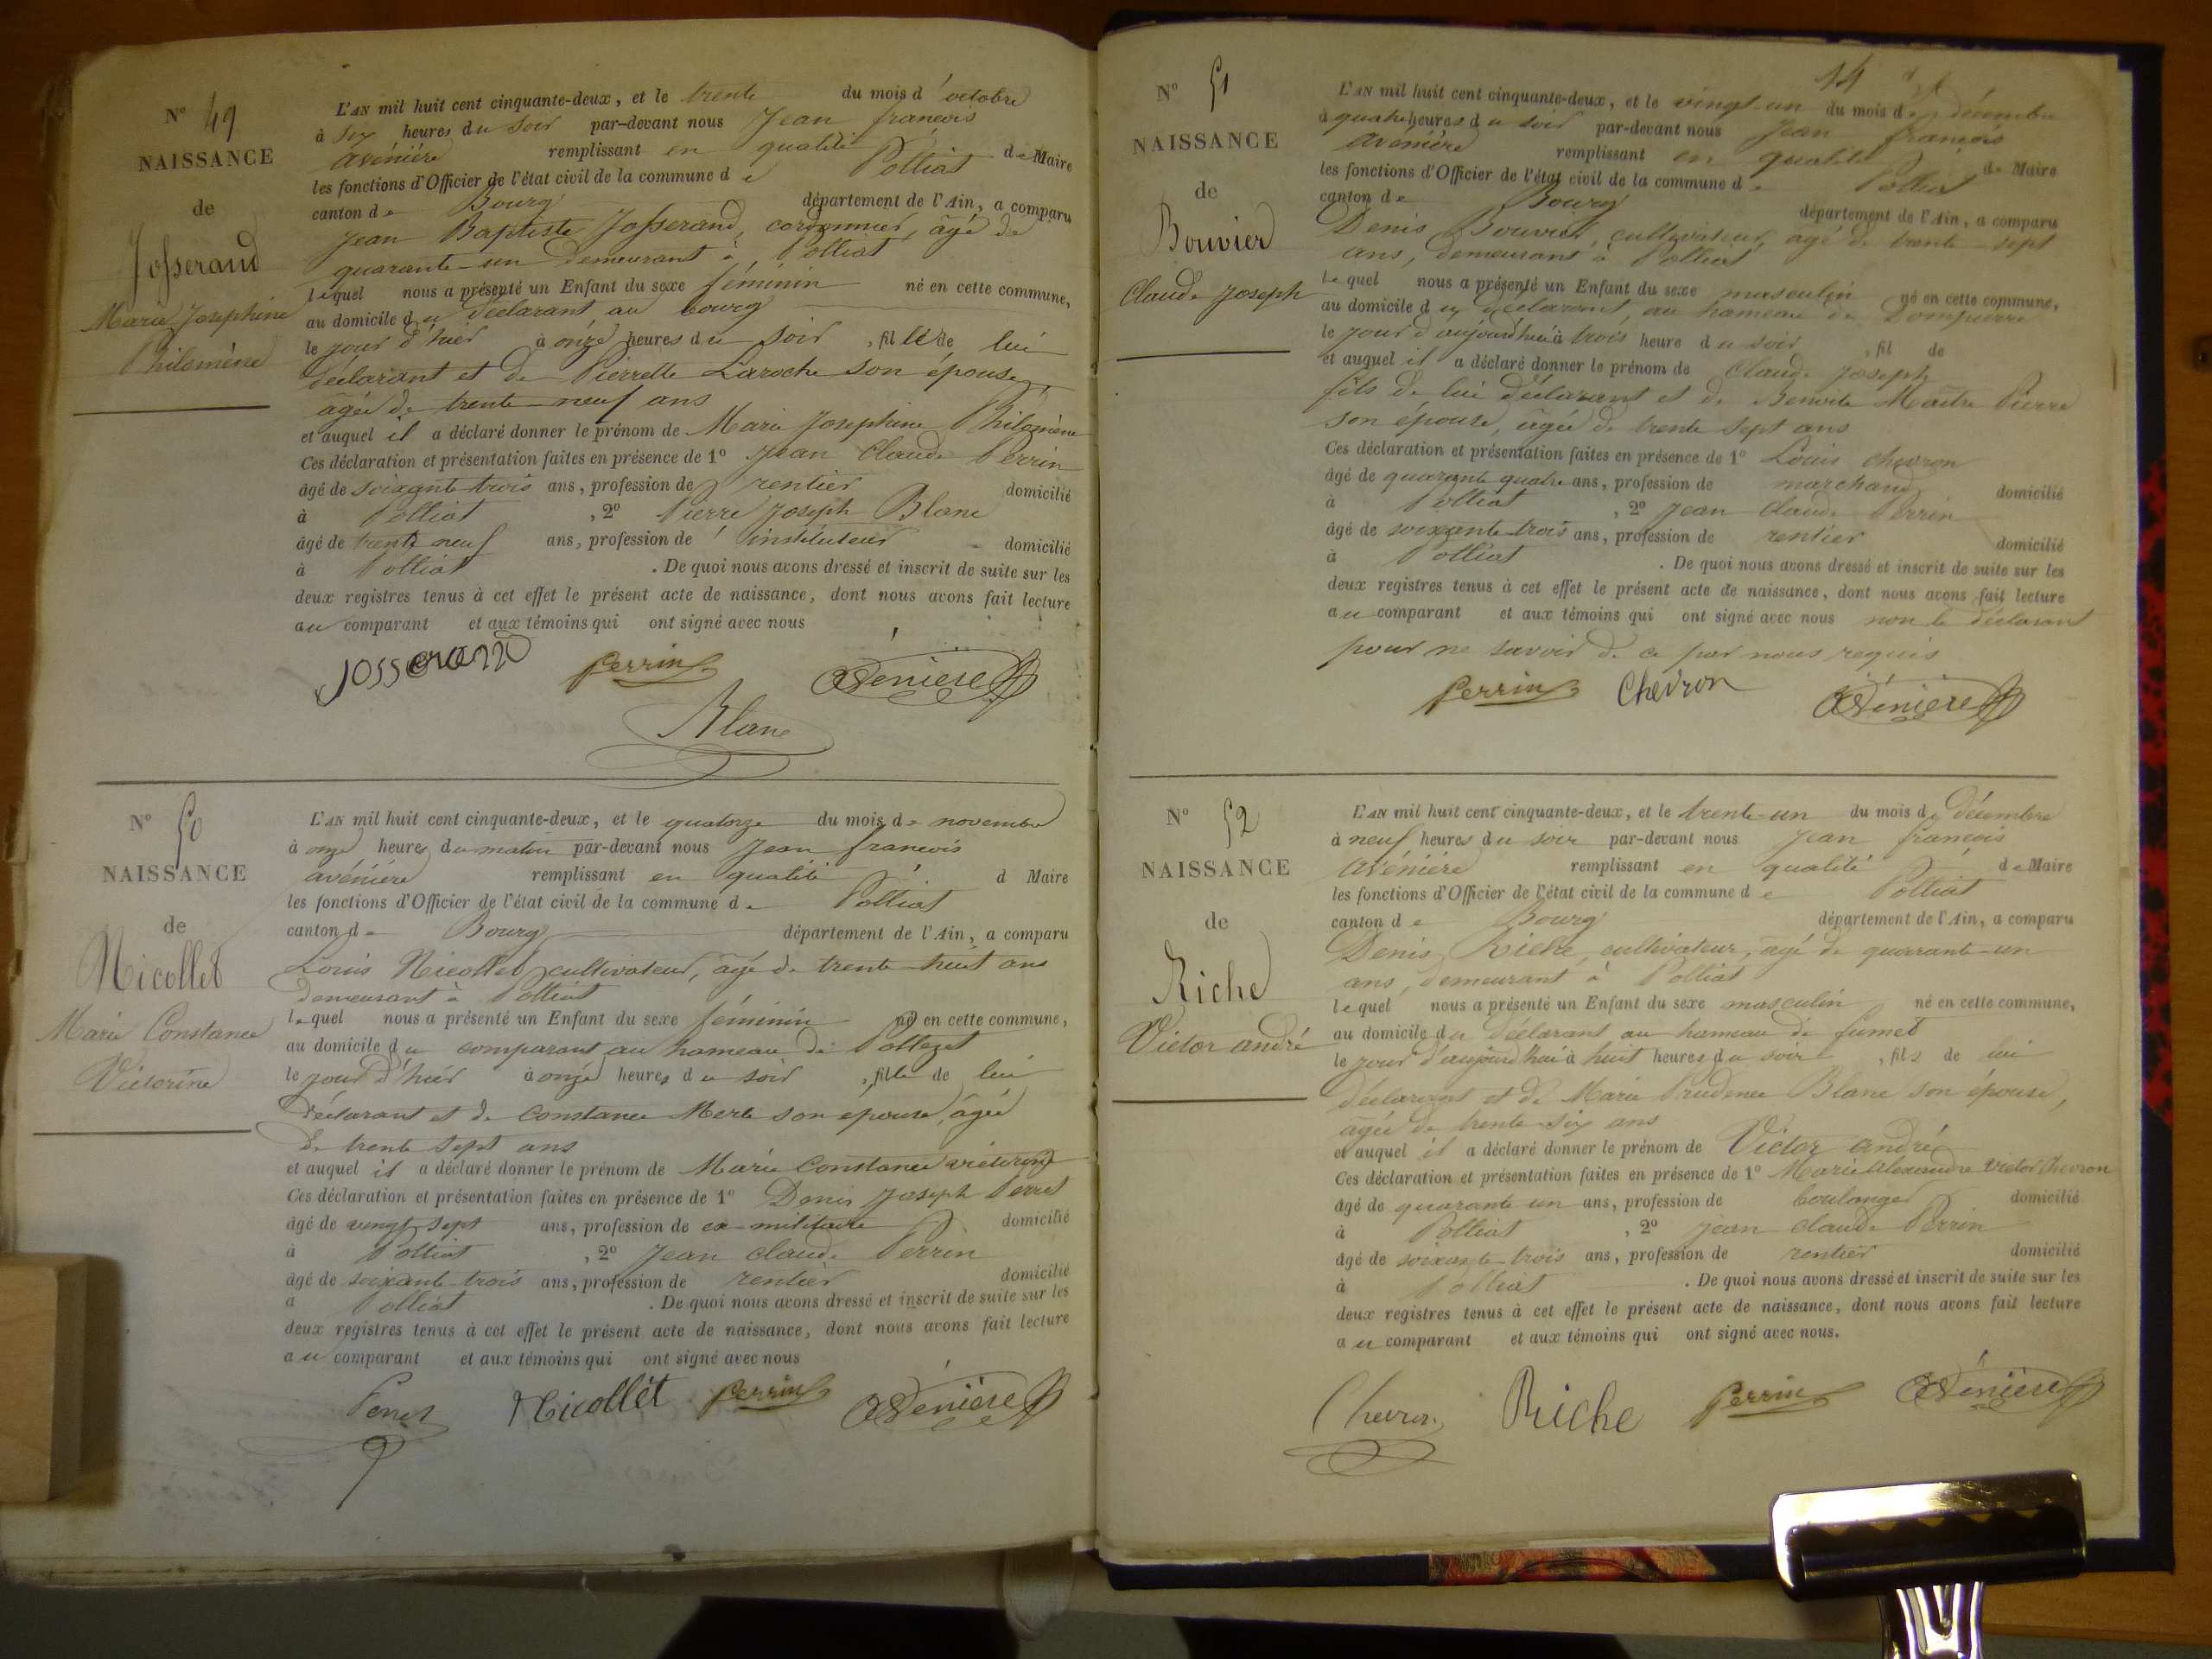 N° 49
NAISSANCE
de
Josserand
Marie Josephine
Philomène
L'AN mil huit cent cinquante-deux, et le trente du mois d'octobre
à six heures du soir par-devant nous Jean francois
avénière remplissant en qualité de Maire
les fonctions d'Officier de l'état civil de la commune de Polliat
canton de Bourg département de l'Ain, a comparu
Jean Baptiste Josserand, cordonnier, âgé de
quarante-un demeurant à Polliat
lequel nous a présenté un Enfant du sexe féminin né en cette commune,
au domicile du déclarant au bourg
le jour d'hier à onze heures du soir, fille de lui
déclarant et de Pierrette Laroche son épouse,
âgée de trente-neuf ans
et auquel il a déclaré donner le prénom de Marie Josephine Philomène
Ces déclaration et présentation faites en présence de 1° Jean Claude Perrin
âgé de soixante trois ans, profession de rentier domicilié
à Polliat, 2° Pierre Joseph Blanc
âgé de trente neuf ans, profession de instituteur domicilié
à Polliat. De quoi nous avons dressé et inscrit de suite sur les
deux registres tenus à cet effet le présent acte de naissance, dont nous avons fait lecture
au comparant et aux témoins qui ont signé avec nous
Josserand Perrin Avénière
Blanc
N° 50
NAISSANCE
de
Nicollet
Marie Constance
Victorine
L'AN mil huit cent cinquante-deux, et le quatorze du mois de novembre
à onze heures du matin par-devant nous Jean francois
avénière remplissant en qualité d Maire
les fonctions d'Officier de l'état civil de la commune de Polliat
canton de Bourg département de l'Ain, a comparu
Louis Nicollet cultivateur, âgé de trente-huit ans
demeurant à Polliat
lequel nous a présenté un Enfant du sexe féminin né en cette commune,
au domicile du comparant au hameau de Pollezet
le jour d'hier à onze heures du soir, fille de lui
déclarant et de Constance Merle son épouse, âgée
de trente sept ans
et auquel il a déclaré donner le prénom de Marie Constance victorine
Ces déclaration et présentation faites en présence de 1° Denis Joseph Perret
âgé de vingt sept ans, profession de ex-militaire domicilié
à Polliat, 2° Jean Claude Perrin
âgé de soixante-trois ans, profession de rentier domicilié
à Polliat. De quoi nous avons dressé et inscrit de suite sur les
deux registres tenus à cet effet le présent acte de naissance, dont nous avons fait lecture
au comparant et aux témoins qui ont signé avec nous
Nicollet Perrin Avénière
14
N° 51
NAISSANCE
de
Bouvier
Claude Joseph
L'AN mil huit cent cinquante-deux, et le vingt-un du mois de décembre
à quatre heures du soir par-devant nous Jean francois
avénière remplissant en qualité de Maire
les fonctions d'Officier de l'état civil de la commune de Polliat
canton de Bourg département de l'Ain, a comparu
Denis Bouvier, cultivateur, âgé de trente-sept
ans, demeurant à Polliat
lequel nous a présenté un Enfant du sexe masculin né en cette commune,
au domicile du déclarant, au hameau de Dompierre
le jour d'aujourd'hui à trois heure du soir, fil de
et auquel il a déclaré donner le prénom de Claude Joseph
fils de lui déclarant et de Benoite Maître Pierre
son épouse, âgée de trente sept ans
Ces déclaration et présentation faites en présence de 1° Louis chevron
âgé de quarante quatre ans, profession de marchand domicilié
à Polliat, 2° Jean Claude Perrin
âgé de soixante-trois ans, profession de rentier domicilié
à Polliat. De quoi nous avons dressé et inscrit de suite sur les
deux registres tenus à cet effet le présent acte de naissance, dont nous avons fait lecture
au comparant et aux témoins qui ont signé avec nous non le déclarant
pour ne savoir de ce par nous requis
Perrin Chevron Avénière
N° 52
NAISSANCE
de
Riche
Victor andré
L'AN mil huit cent cinquante-deux, et le trente-un du mois de Décembre
à neuf heures du soir par-devant nous Jean francois
avénière remplissant en qualité de Maire
les fonctions d'Officier de l'état civil de la commune de Polliat
canton de Bourg département de l'Ain, a comparu
Denis Riche, cultivateur, âgé de quarante-un
ans, demeurant à Polliat
lequel nous a présenté un Enfant du sexe masculin né en cette commune,
au domicile du déclarant au hameau de fumet
le jour d'aujourd'hui à huit heures du soir, fils de lui
déclarant et de Marie Prudence Blanc son épouse,
âgée de trente-six ans
et auquel il a déclaré donner le prénom de Victor andré
Ces déclaration et présentation faites en présence de 1° Marie Alexandre Victor Chevron
âgé de quarante un ans, profession de boulanger domicilié
à Polliat, 2° Jean Claude Perrin
âgé de soixante-trois ans, profession de rentier domicilié
à Polliat. De quoi nous avons dressé et inscrit de suite sur les
deux registres tenus à cet effet le présent acte de naissance, dont nous avons fait lecture
au comparant et aux témoins qui ont signé avec nous.
Chevron Riche Perrin Avénière